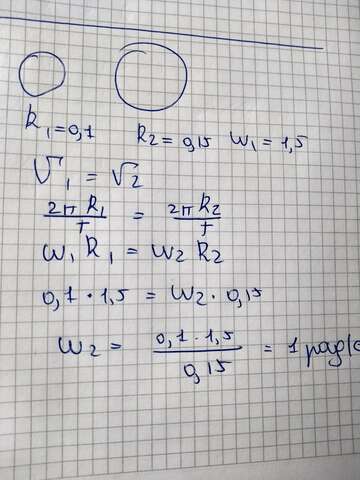 R₁=0,1 R₂=0,15 ω₁=1,5
V₁ = V₂
2π R₁ / T = 2π R₂ / T
ω₁ R₁ = ω₂ R₂
0,1 · 1,5 = ω₂ · 0,15
ω₂ = 0,1 · 1,5 / 0,15 = 1 рад/с